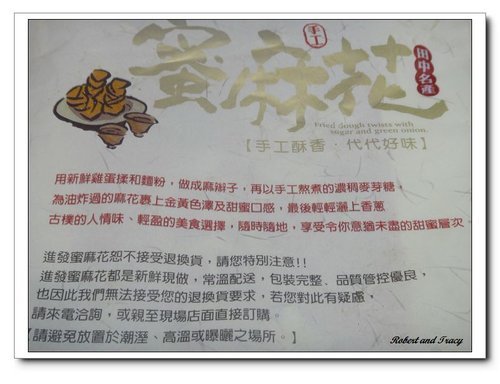 手工
蜜麻花
田中名產
Fried dough twists with
sugar and green onion.
【手工酥香．代代好味】
用新鮮雞蛋揉和麵粉，做成麻辮子，再以手工熬煮的濃稠麥芽糖，
為油炸過的麻花裹上金黃色澤及甜蜜口感，最後輕輕灑上香蔥
古樸的人情味、輕盈的美食選擇，隨時隨地，享受令你意猶未盡的甜蜜層次
進發蜜麻花恕不接受退換貨，請您特別注意!!
進發蜜麻花都是新鮮現做，常溫配送，包裝完整、品質管控優良，
也因此我們無法接受您的退換貨要求，若您對此有疑慮，
請來電洽詢，或親至現場店面直接訂購。
【請避免放置於潮溼、高溫或曝曬之場所。】
Robert and Tracy